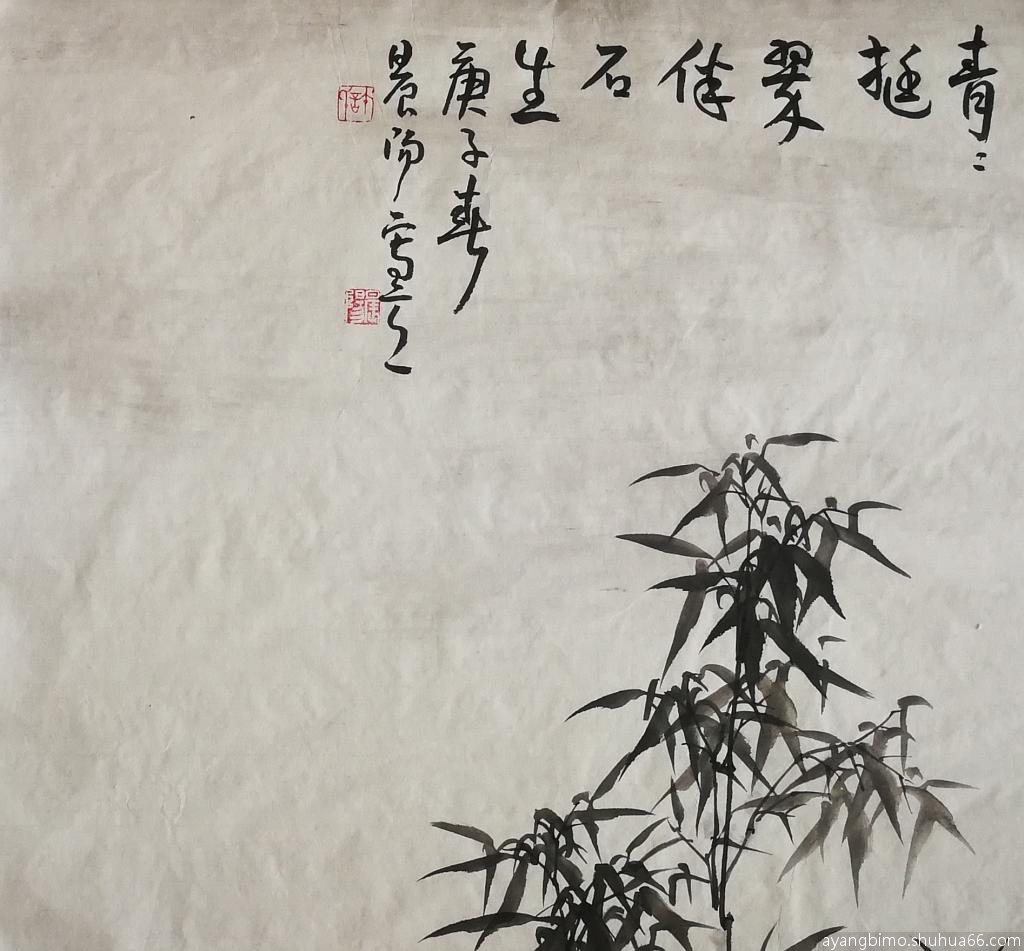 青〻挺翠伴石生
庚子春
晨陽
ayangbimo.shuhua66.com